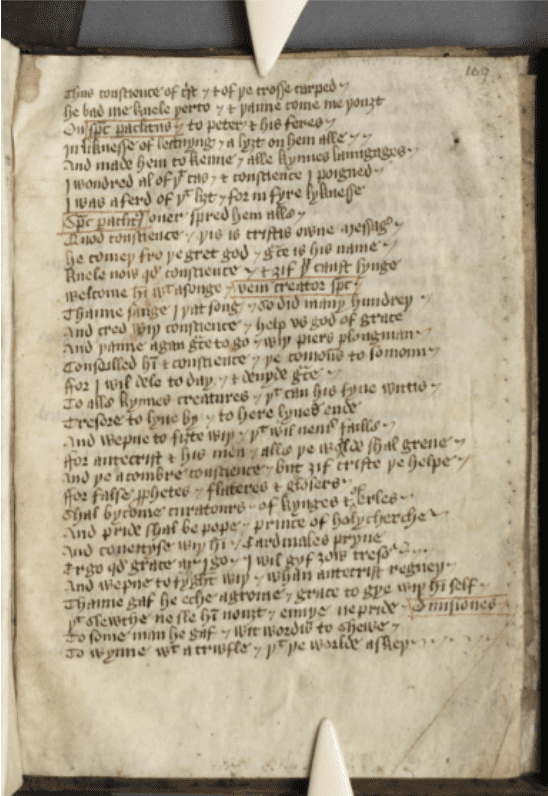 169
Thus conscience of cst & of þe crosse carped
he bad me knele þerto & þanne come me þouȝt
On spc paclitus to peter & his feres
In liknesse of leittyng a lyȝt on hem alle
And made hem to kenne alle kynnes langages
I wondred al of þt cas & conscience I poigned
I was aferd of þt liȝt for in fyre lyknesse
Spc paclit ouer spred hem alle
Quod conscience þis is cristis owne messag
he comeþ fro þe gret god gce is his name
Knele now qd conscience & ȝif þu canst synge
welcome hī wt a songe veni creator spc
Thanne sange I þat song so did many hundreþ
And cred wiþ conscience help vs god of grace
And þanne agan gce to go wiþ piers plougman
Conseilled hī & conscience þe comoūs to somoun
ffor I wil dele to day & deuyde gce
To alle kynnes creatures þt can his fyue wittis
Tresore to lyue by to here lyues ende
And wepne to fiȝte wiþ þt wil neuer faille
ffor antecrist & his men alle þe worlde shal greue
And þe acombre conscience but ȝif criste þe helpe
ffor false pphetes flateres & glosers
Shal bycome curatours of kynges & of Erles
And pride shal be pope prince of holycherche
And coueityse wiþ hī Cardinales þryne
Ergo qd grace ar I go I wil gyf ȝow tresor
And wepne to fyght wiþ whan antecrist regneþ
Thanne gaf he eche a grome grace to gye wiþ hī self
þt slewthe ne sle hī nouȝt enuye ne pride Diuisiones
To some man he gaf wit wordis to shewe
To wynne wt a trwfle þt þe worlde askeþ